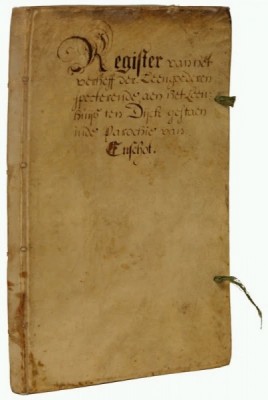 Register van het
verheff der Leengoederen
specterende aen het Leen
huijs ten Dijck gestaen
inde Baronie van
Enschot.